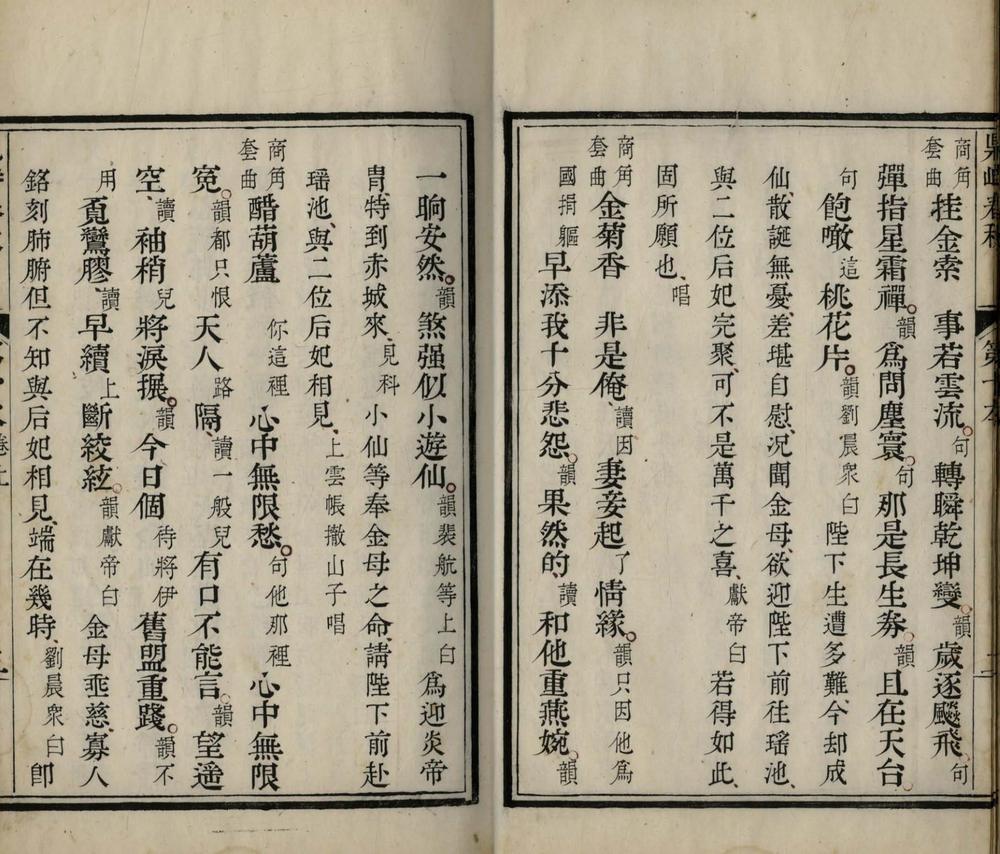 鼎峙春秋 第十本
商角套曲 挂金索 事若雲流。句轉瞬乾坤變。韻歲逐飈飛。句
彈指星霜禪。韻為問塵寰。句那是長生券。韻且在天台。
句飽噉這桃花片。韻劉晨衆白陛下生遭多難、今却成
仙、散誕無憂、差堪自慰、况聞金母、欲迎陛下前往瑤池、
與二位后妃完聚、可不是萬千之喜、獻帝白若得如此、
固所願也、唱
商角套曲 金菊香 非是俺、讀因妻妾起了情緣。韻只因他為
國捐軀早添我十分悲怨。韻果然的、讀和他重燕婉。韻
一晌安然。韻煞强似小遊仙。韻裴航等上白為迎炎帝
胄、特到赤城來、見科小仙等奉金母之命、請陛下前赴
瑤池、與二位后妃相見、上雲帳撤山子唱
商角套曲 醋葫蘆 你這裡心中無限愁。句他那裡心中無限
冤。韻都只恨天人路隔、讀一般兒有口不能言。韻望遥
空、讀袖稍兒將淚搌。韻今日個待將伊舊盟重踐。韻不
用覔鸞膠、讀早續上斷絞絃。韻獻帝白金母垂慈、寡人
銘刻肺腑但不知與后妃相見、端在幾時、劉晨衆白卽